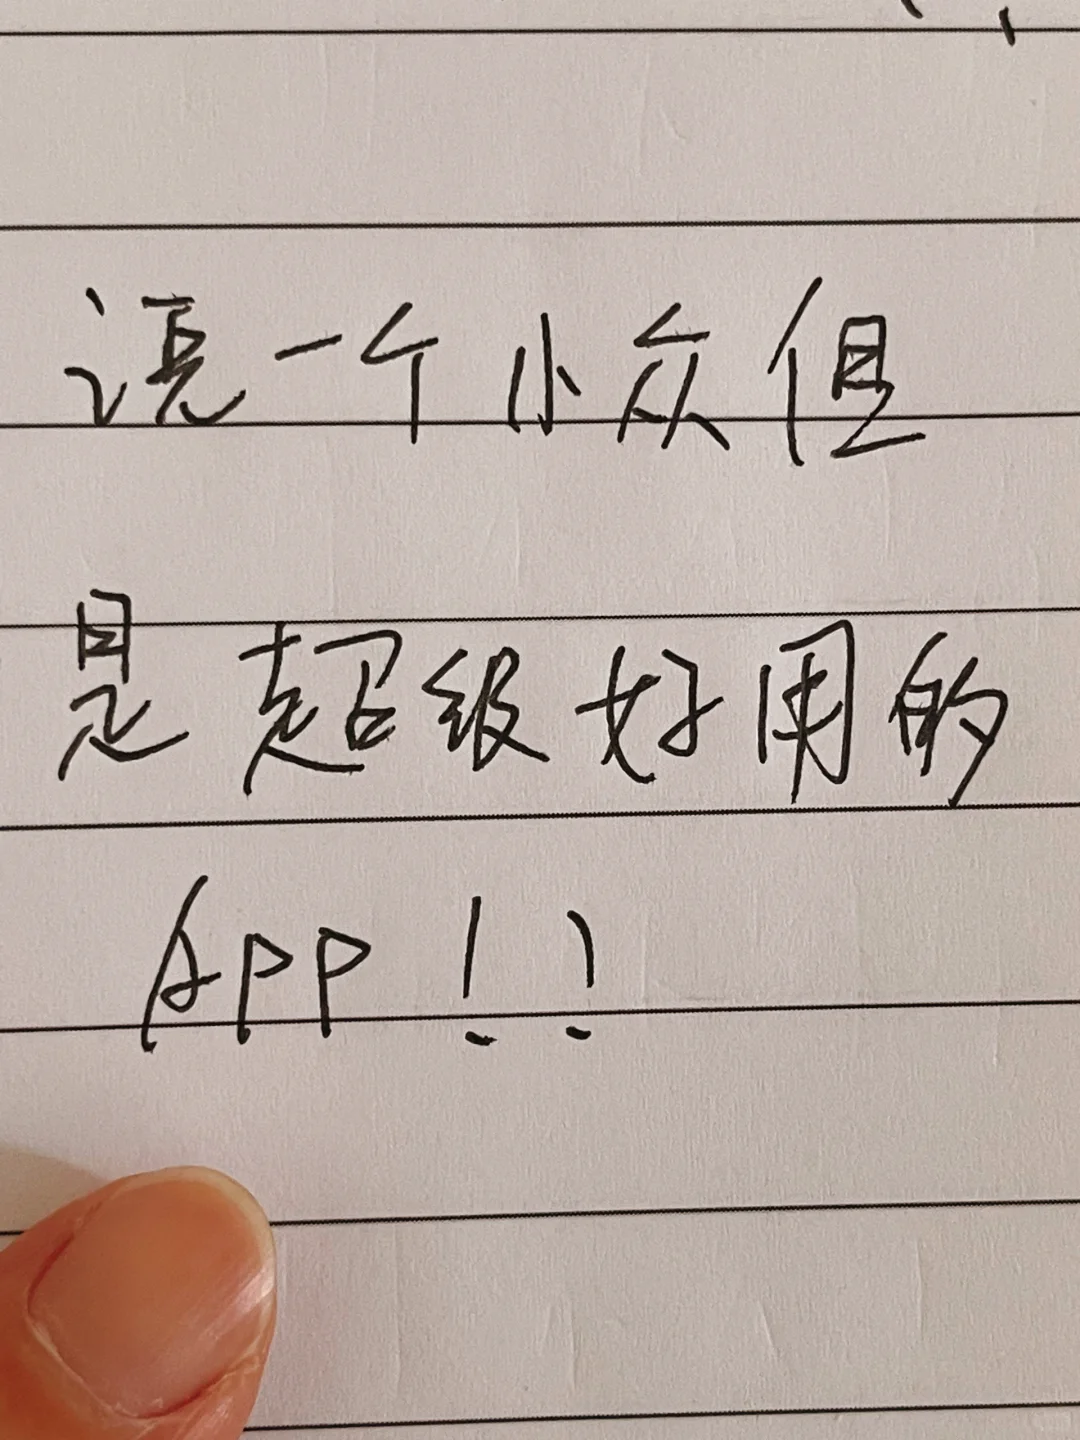 说一个小众但
是超级好用的
APP！！